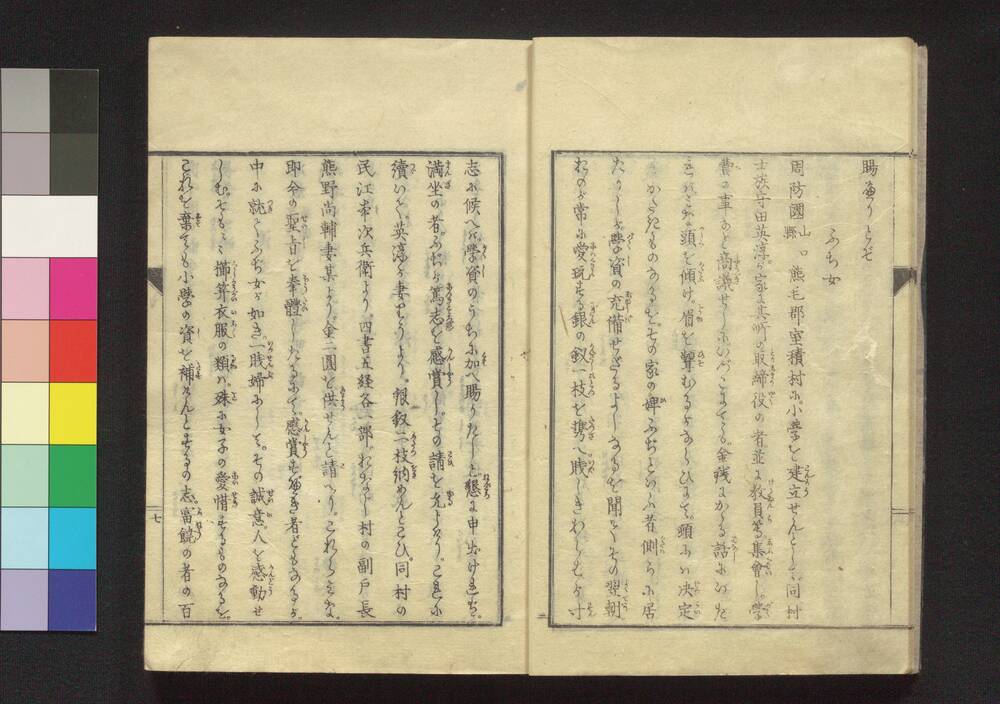 賜畣りとぞ
ふち女
周防國山縣口熊毛郡室積村に小學を建立せんとて同村
士族守田英淳が家に其所の取締役の者並に教員等集會し學
費の事など商議せしにいづこにても金錢にかゝる話にいた
ればみな頭を傾け眉を顰むるがならひにて頭には決定
かたきものなるをその家の婢ふちといふ者側らに居
たりしが學資の充備せざるよしなるを聞てその翌朝
おのが常に愛玩する銀の釵一枝を携へ賤しきわらはが寸
志に候へば學資のうちに加へ賜りたしと懇に申出ければ
満坐の者ふちが篤志を感賞しその請を允よりこれに
續いて英淳が妻りうより銀釵二枝納めんとこひ同村の
民江本次兵衛より四書五経各一部おなじ村の副戸長
熊野尚輔妻某より金二圓を供せんと請へりこれらみな
即今の聖旨を奉體したるにて感賞すべき者どもなるが
中に就てふち女が如き一賎婦にしてその誠意人を感動せ
しむそも〳〵揷笄衣服の類は殊に女子の愛惜するものなるを
これを棄ても小學の資を補はんとするの志富饒の者の百
七